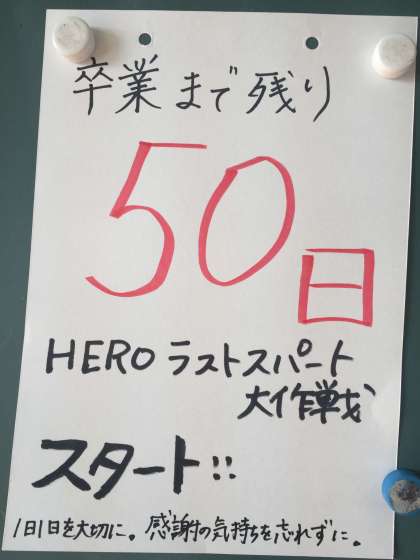 卒業まで残り
50日
HERO ラストスパート
大作戦
スタート!!
1日1日を大切に。感謝の気持ちを忘れずに。